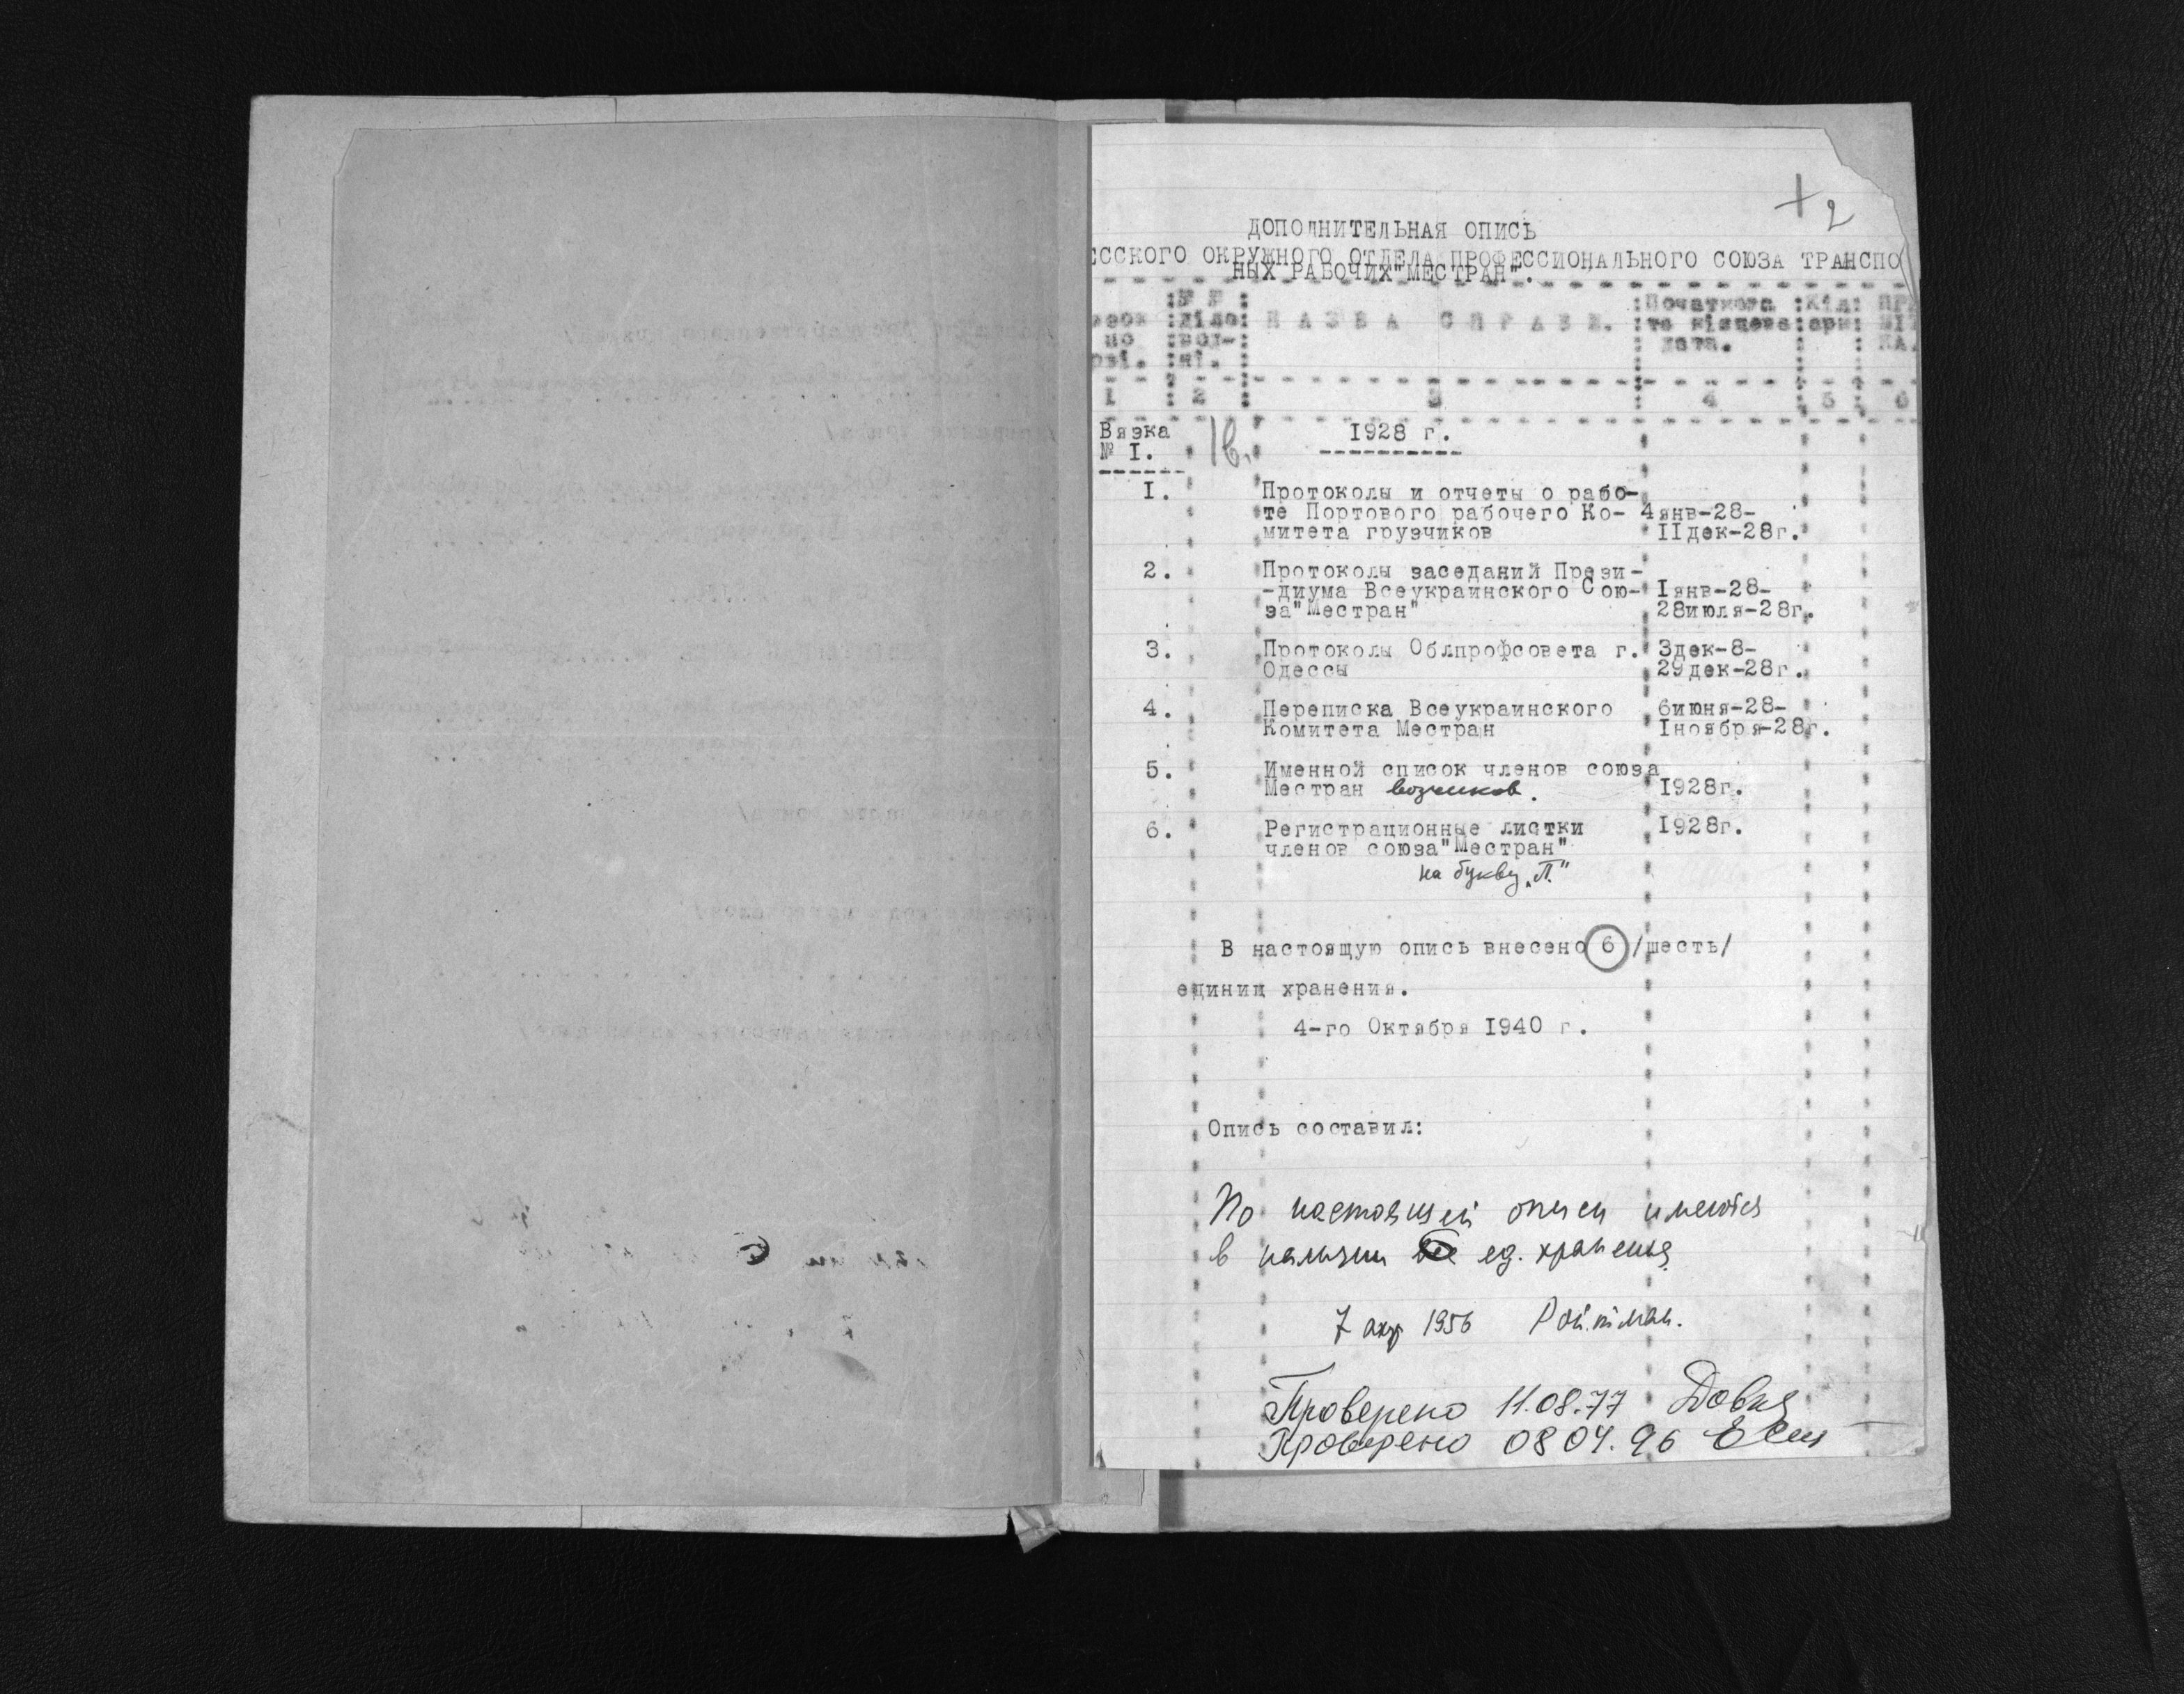 2
ДОПОЛНИТЕЛЬНАЯ ОПИСЬ
ЕССКОГО ОКРУЖНОГО ОТДЕЛА ПРОФЕССИОНАЛЬНОГО СОЮЗА ТРАНСПО
НЫХ РАБОЧИХ"МЕСТРАН".
№ № :Початкова :Кіл: ПРИ
:діло: Н А З В А С П Р А В И. :та кінцева:арк: МІТ
по :вод-: дата. КА.
рзі. :ні.
1 : 2 : 3 : 4 : 5 : 6
Вязка 1928 г.
№ I.
I. Протоколы и отчеты о рабо-
те Портового рабочего Ко- 4янв-28-
митета грузчиков IIдек-28г.
2. Протоколы заседаний Прези-
-диума Всеукраинского Сою- Iянв-28-
за"Местран" 28июля-28г.
3. Протоколы Облпрофсовета г. 3дек-8-
Одессы 29дек-28г.
4. Переписка Всеукраинского 6июня-28-
Комитета Местран Iноября-28г.
5. Именной список членов союза
Местран возчиков. I928г.
6. Регистрационные листки I928г.
членов союза"Местран"
на букву „П."
В настоящую опись внесено 6 /шесть/
единиц хранения.
4-го Октября I940 г.
Опись составил:
По настоящей описи имеются
в наличии 6 ед. хранения
7 апр 1956 Ройтман.
Проверено 11.08.77
Проверено 08 04. 96